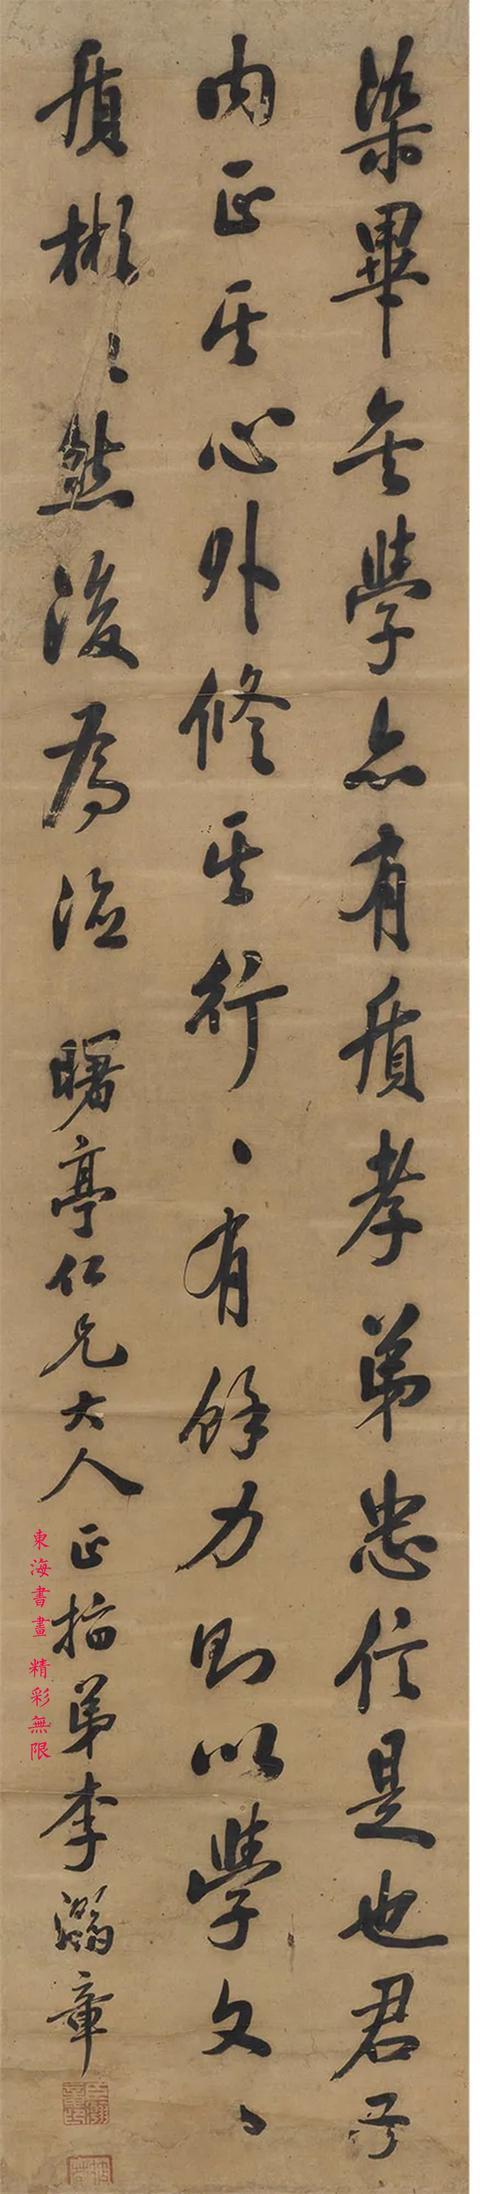 染畢矣學亦有質孝弟忠信是也君子
內正其心外修其行〻有餘力則以學文〻
質彬〻然後為德 曙亭仁兄大人正指弟李瀚章
東海書畫 精彩無限